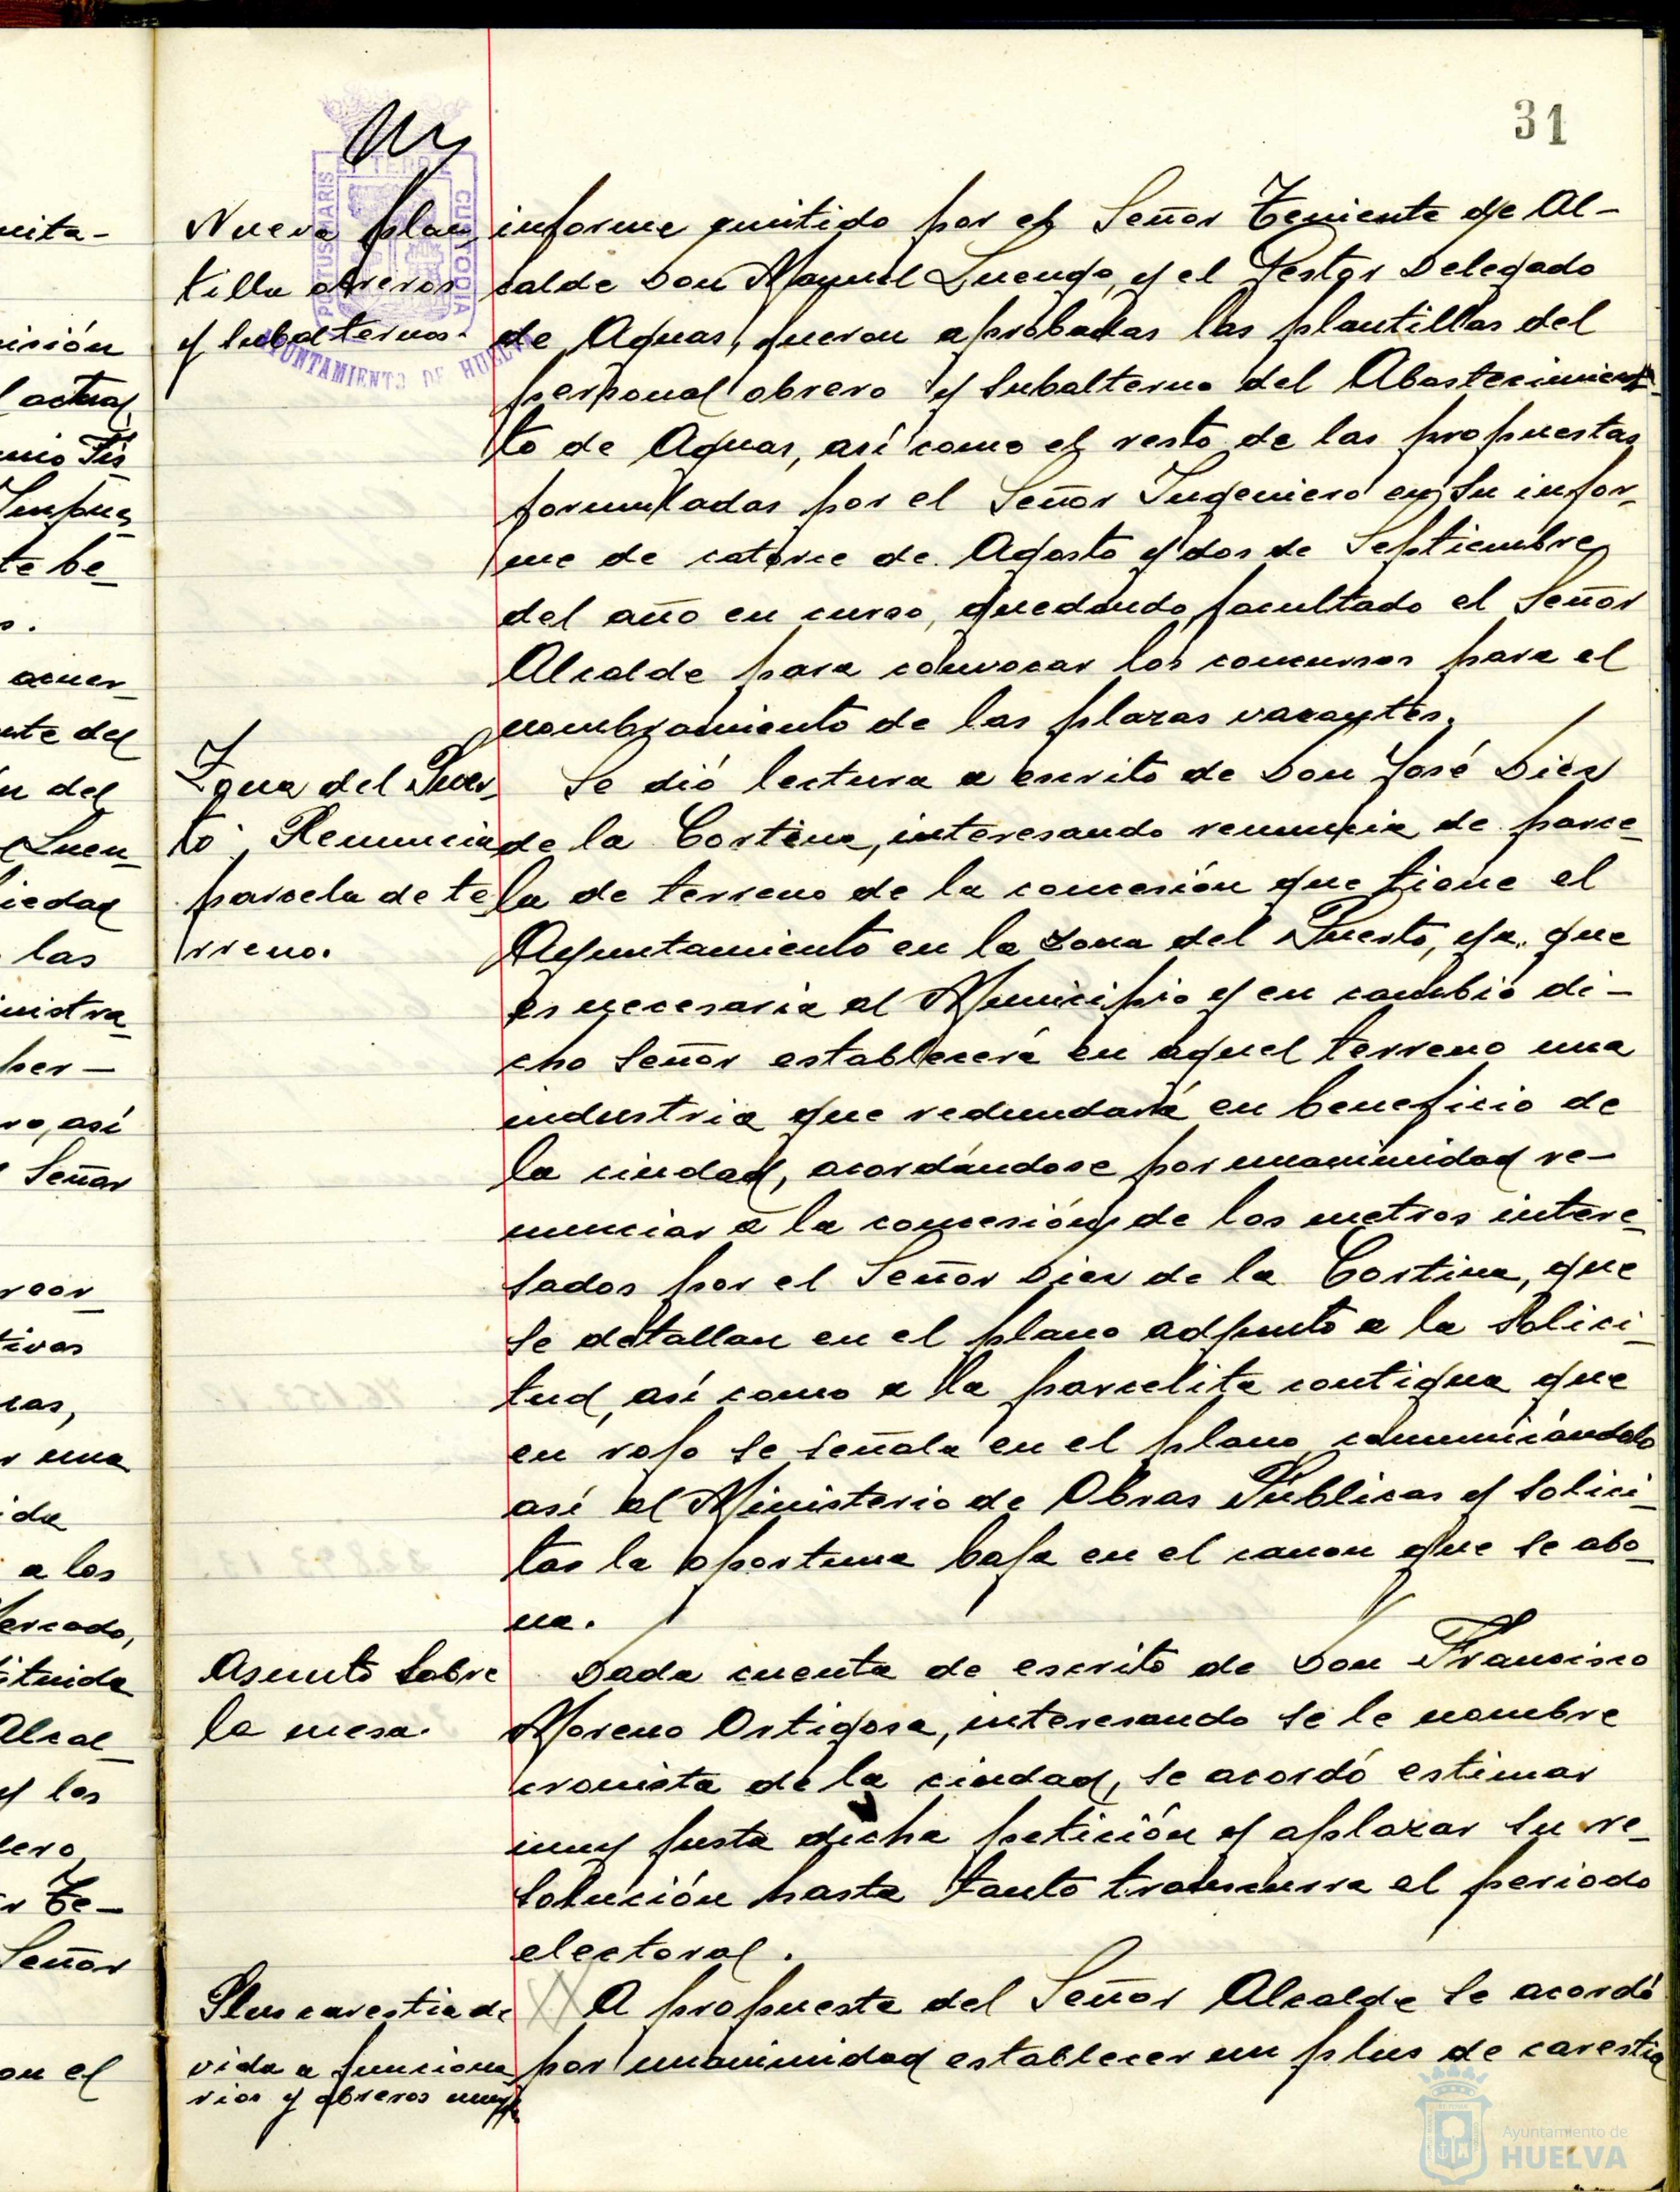 31
Nueva plan-
tilla obreros
y subalternos.
PORTUS MARIS
ET TERRE
CUSTODIA
AYUNTAMIENTO DE HUELVA
informe emitido por el Señor Teniente de Al-
calde Don Manuel Luengo, y el Gestor Delegado
de Aguas, fueron aprobadas las plantillas del
personal obrero y subalterno del Abastecimien-
to de Aguas, así como el resto de las propuestas
formuladas por el Señor Ingeniero en su infor-
me de catorce de Agosto y dos de Septiembre
del año en curso, quedando facultado el Señor
Alcalde para convocar los concursos para el
nombramiento de las plazas vacantes.
Zona del Puer-
to. Renuncia
parcela de te-
rreno.
Se dió lectura a escrito de Don José Diez
de la Cortina, interesando renuncia de parce-
la de terreno de la concesión que tiene el
Ayuntamiento en la zona del Puerto, ya que
es necesaria al Municipio y en cambio di-
cho Señor establecerá en aquel terreno una
industria que redundará en beneficio de
la ciudad, acordándose por unanimidad re-
nunciar a la concesión de los metros intere-
sados por el Señor Diez de la Cortina, que
se detallan en el plano adjunto a la solici-
tud, así como a la parcelita contigua que
en rojo se señala en el plano, comunicándolo
así al Ministerio de Obras Públicas y solici-
tar la oportuna baja en el canon que se abo-
na.
Asunto sobre
la mesa.
Dada cuenta de escrito de Don Francisco
Moreno Ortigosa, interesando se le nombre
cronista de la ciudad, se acordó estimar
muy justa dicha petición y aplazar su re-
solución hasta tanto transcurra el periodo
electoral.
Plus carestia de
vida a funciona-
rios y obreros
A propuesta del Señor Alcalde se acordó
por unanimidad establecer un plus de carestia
nita-
isión
l actual
te be-
acuer-
n del
Luen-
iedad
las
nistra-
per-
ro, así
Señor
cas,
una
a los
ercado,
tituida
Alcal-
y los
r Te-
Señor
on el
Ayuntamiento de
HUELVA